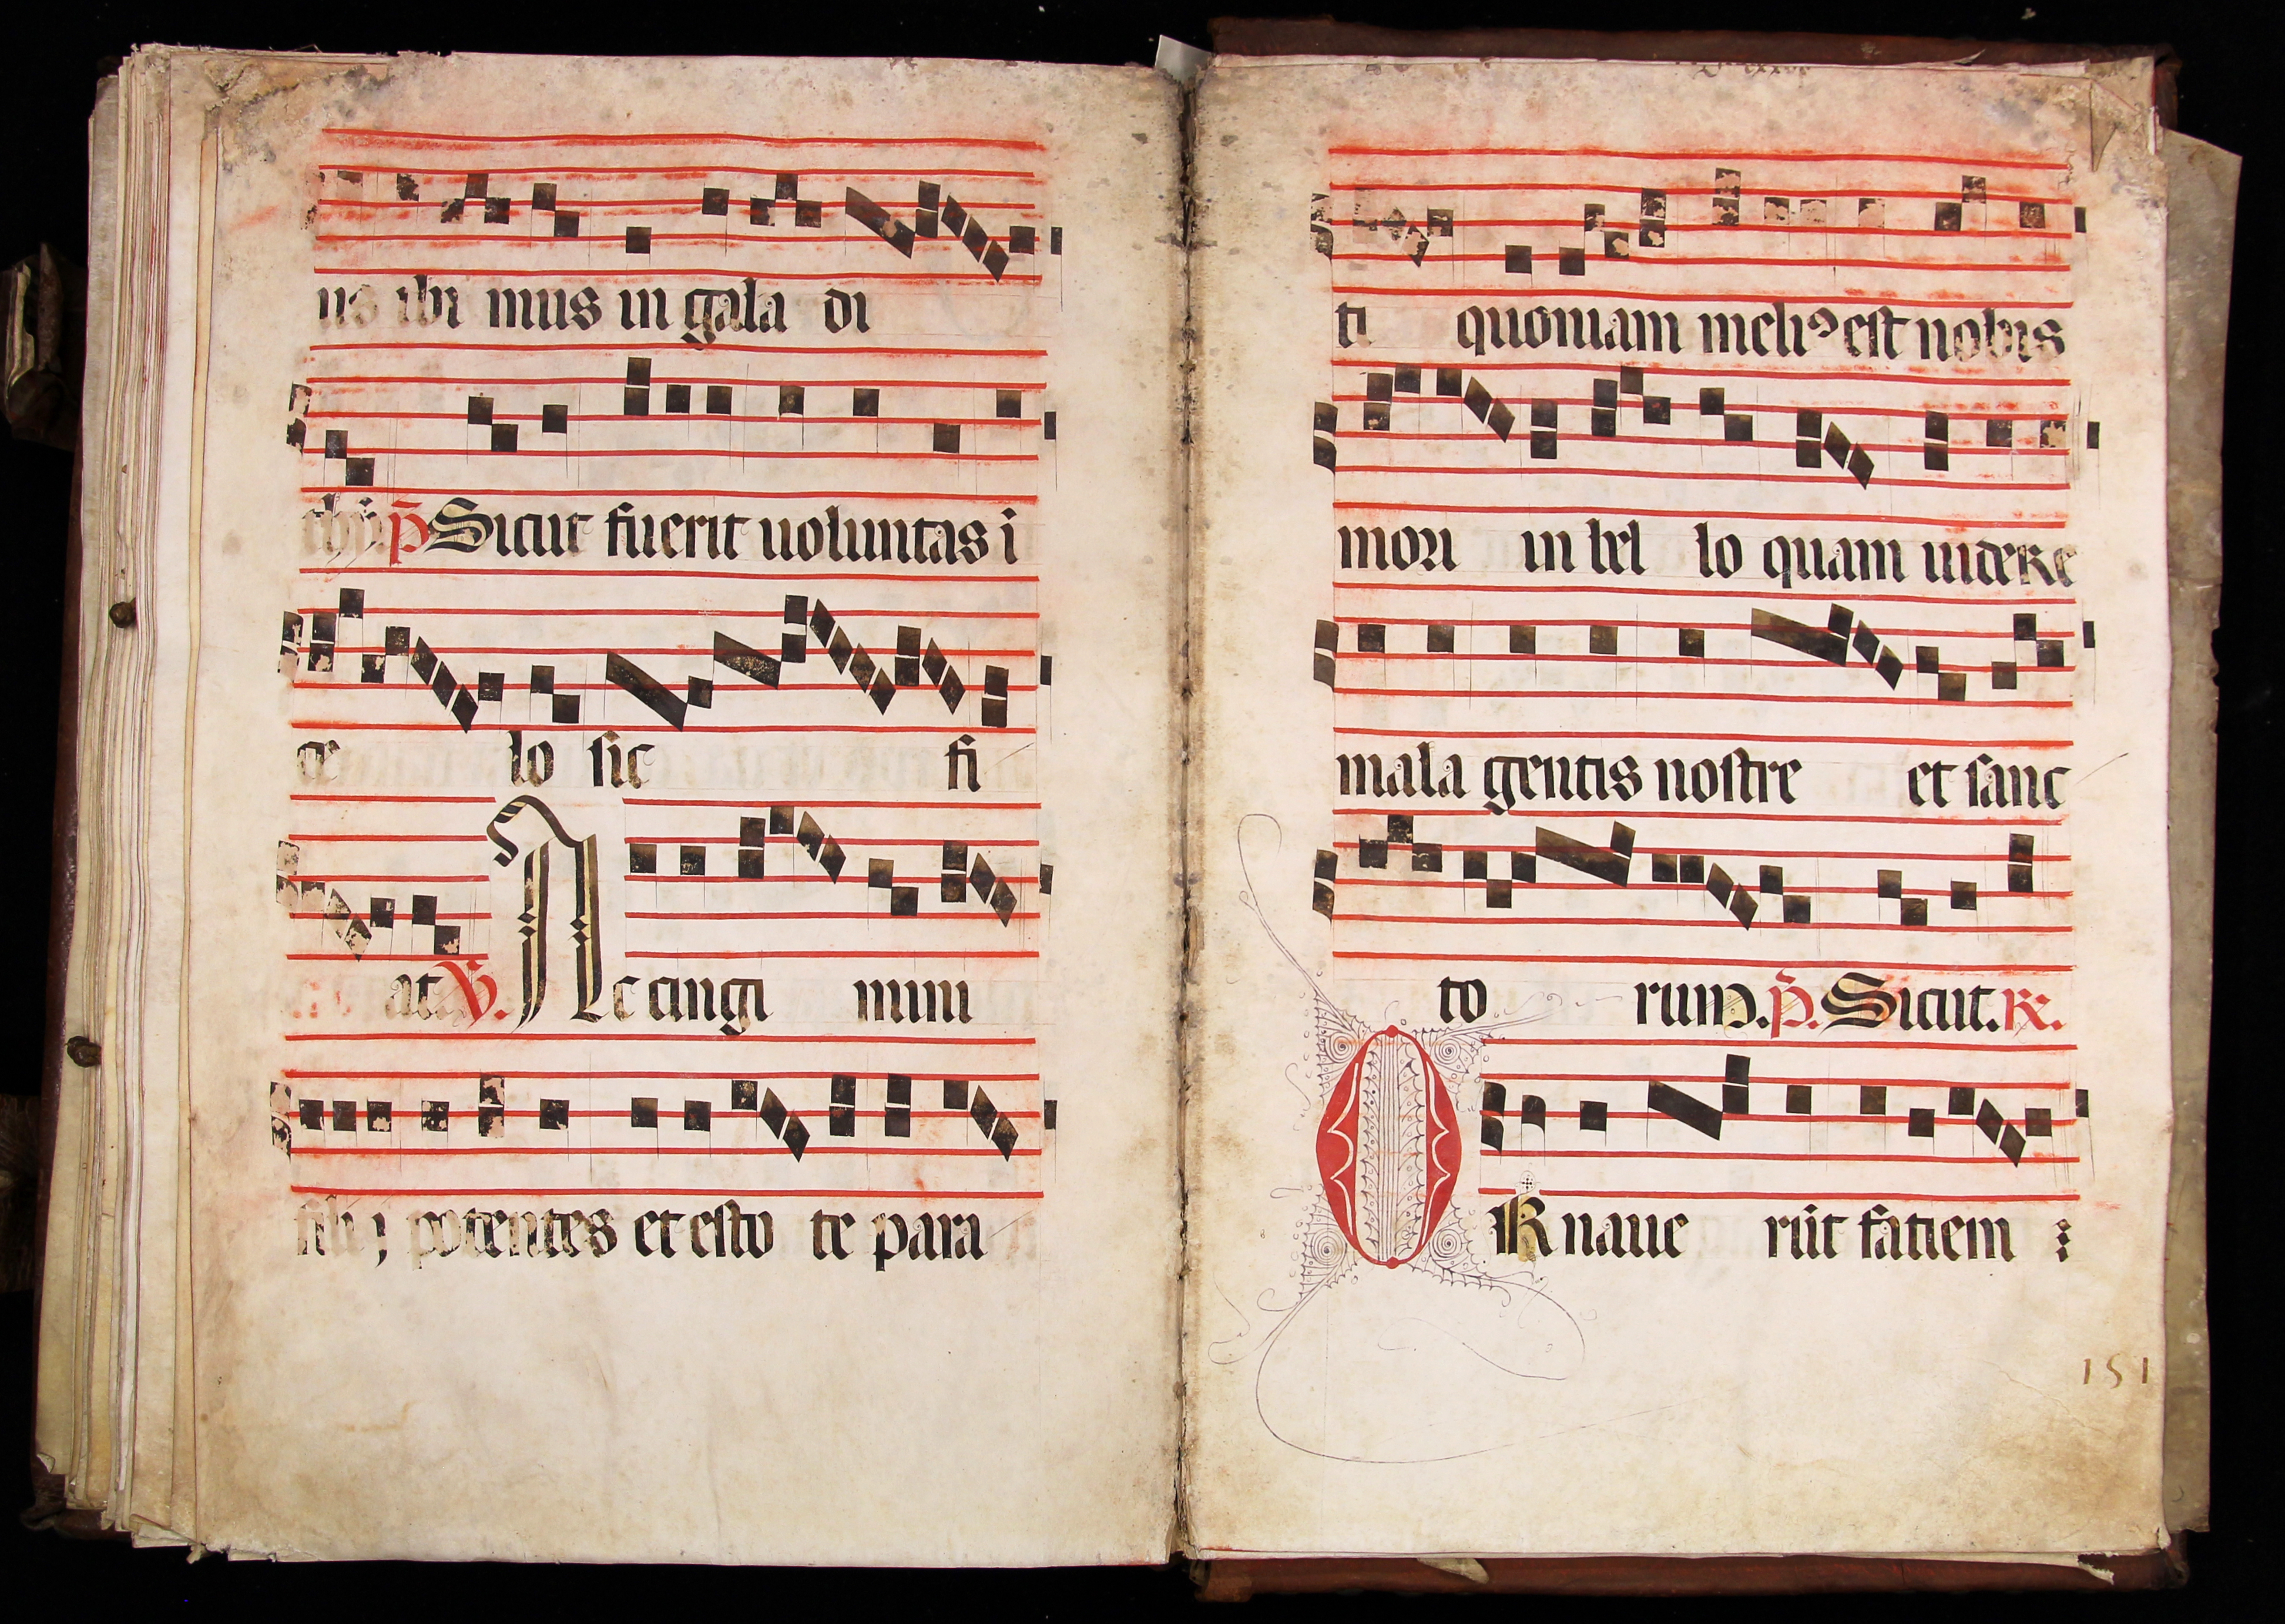 us ibi mus in gala di
thỹ p̃ Sicut fuerit uoluntas i
ce lo sic fi
at V̓. Ac cingi mini
filij potentes et esto te para
ti quoniam meliꝰ est nobis
mori in bel lo quam uidere
mala gentis nostre et sanc
to rum. p̃. Sicut. R.
Ornaue rūt fatiem
151